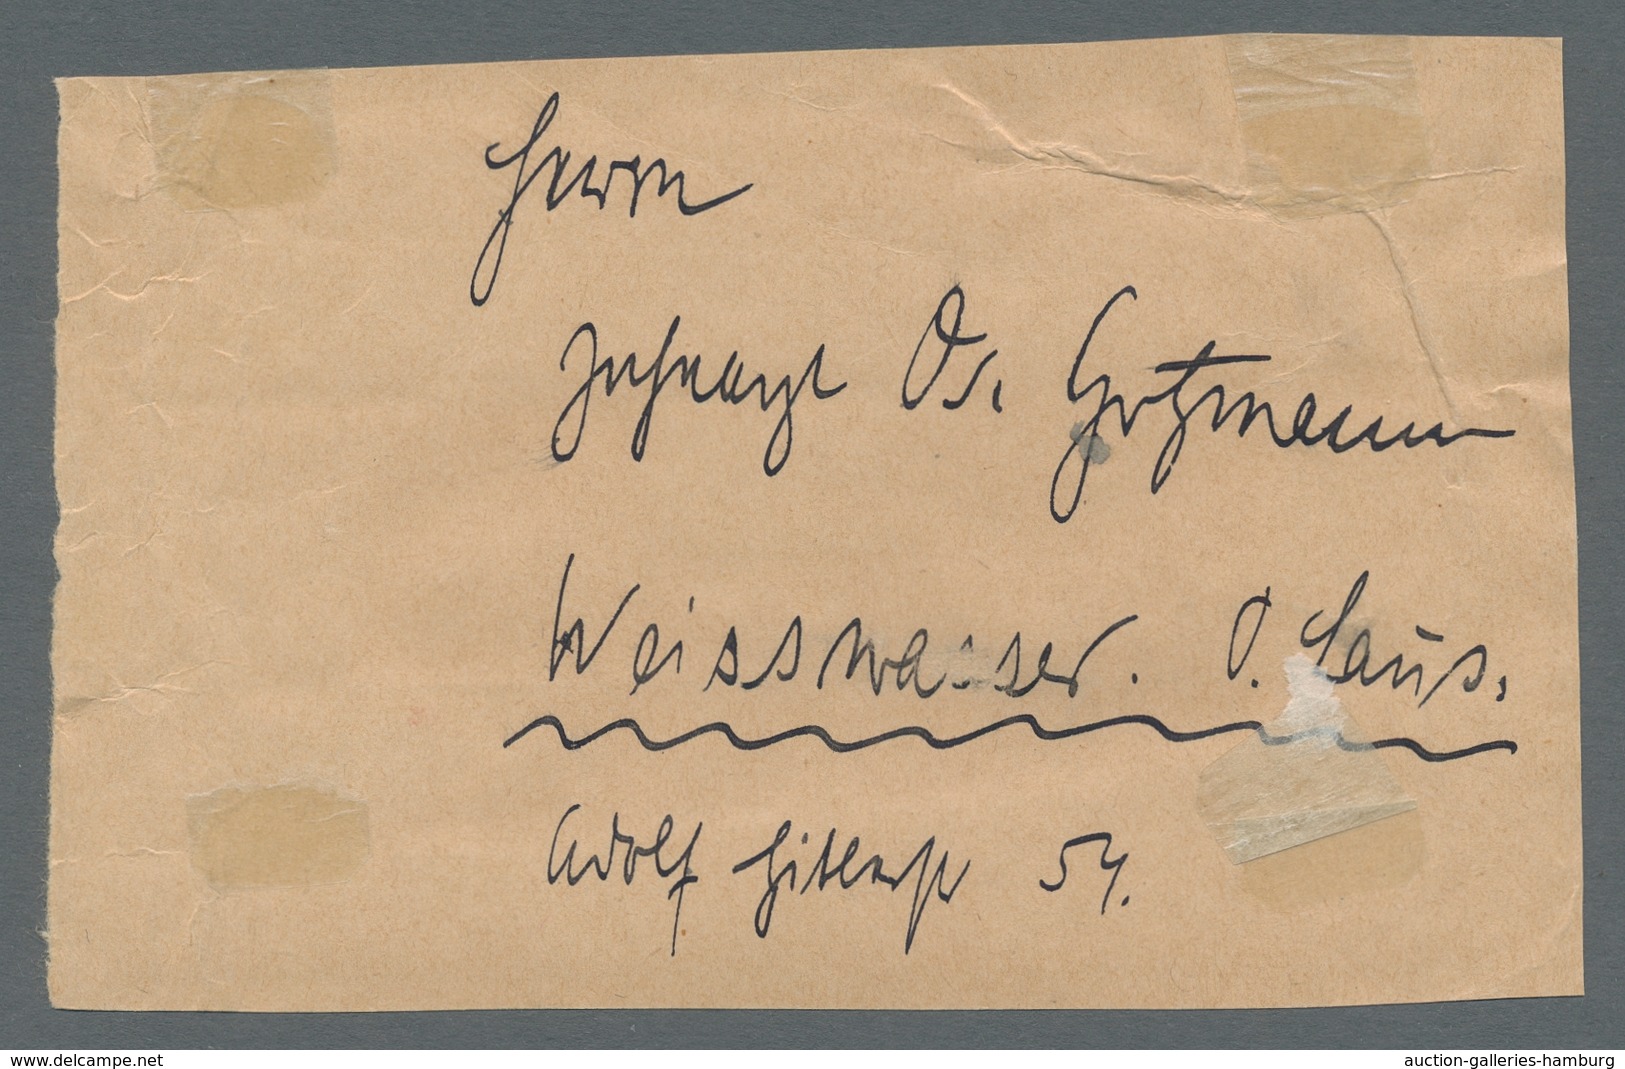 Herrn
Zahnarzt Dr. Gotzmann
Weisswasser. O. Laus.
Adolf Hitlerstr 54.
www.delcampe.net
auction-galleries-hamburg